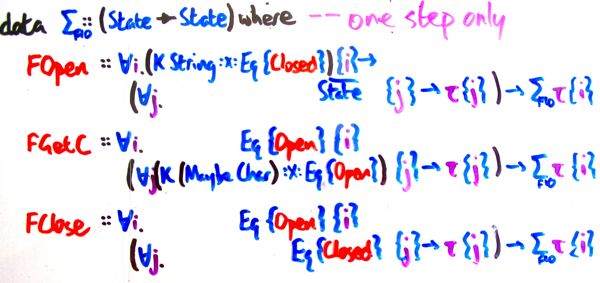 data Σ_FIO :: (State → State) where -- one step only
FOpen :: ∀i. (K String :x: Eq {Closed}) {i} →
(∀j. State {j} → τ {j}) → Σ_FIO τ {i}
FGetC :: ∀i. Eq {Open} {i}
(∀j(K (Maybe Char) :x: Eq {Open}) {j} → τ {j}) → Σ_FIO τ {i}
FClose :: ∀i. Eq {Open} {i}
(∀j. Eq {Closed} {j} → τ {j}) → Σ_FIO τ {i}